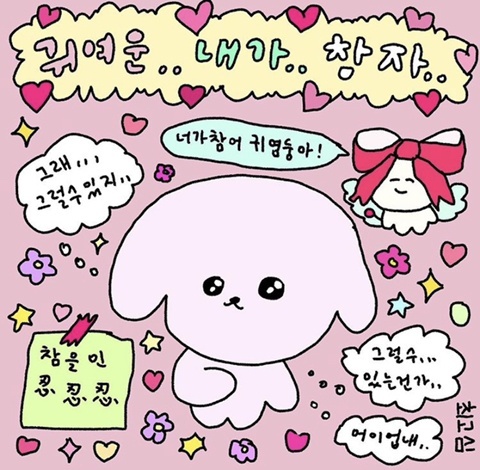 귀여운.. 내가.. 참자..
너가참어 귀염둥아!
그래...
그럴수있지..
참을 인
忍. 忍. 忍.
그럴수...
있는건가..
어이업내..
최고심